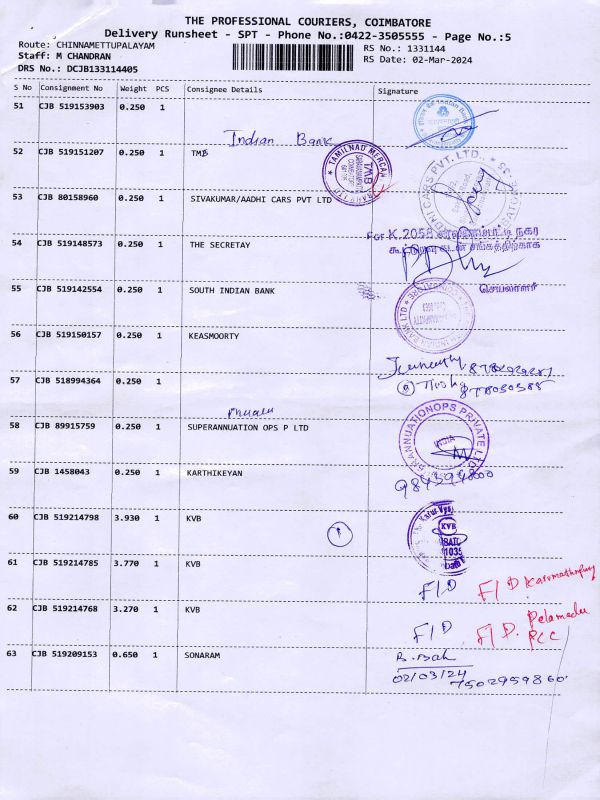 THE PROFESSIONAL COURIERS, COIMBATORE
Delivery Runsheet - SPT - Phone No.:0422-3505555 - Page No.:5
Route: CHINNAMETTUPALAYAM RS No.: 1331144
Staff: M CHANDRAN RS Date: 02-Mar-2024
DRS No.: DCJB133114405
S No Consignment No Weight PCS Consignee Details Signature
51 CJB 519153903 0.250 1
Indian Bank
52 CJB 519151207 0.250 1 TMB
TAMILNAD MERCAN
TMB
53 CJB 80158960 0.250 1 SIVAKUMAR/AADHI CARS PVT LTD
CARS PVT. LTD.
K.2058
54 CJB 519148573 0.250 1 THE SECRETAY
செயலாளர்
55 CJB 519142554 0.250 1 SOUTH INDIAN BANK
INDIAN BANK LTD
56 CJB 519150157 0.250 1 KEASMOORTY
57 CJB 518994364 0.250 1
58 CJB 89915759 0.250 1 SUPERANNUATION OPS P LTD
RANNUATIONOPS PRIVATE L
INDIA
59 CJB 1458043 0.250 1 KARTHIKEYAN
60 CJB 519214798 3.930 1 KVB
1
KVB
1035
Date
61 CJB 519214785 3.770 1 KVB
F/D F/D
62 CJB 519214768 3.270 1 KVB
F/D F/D. Pelamedu
PCC
63 CJB 519209153 0.650 1 SONARAM
02/03/24
7502959860